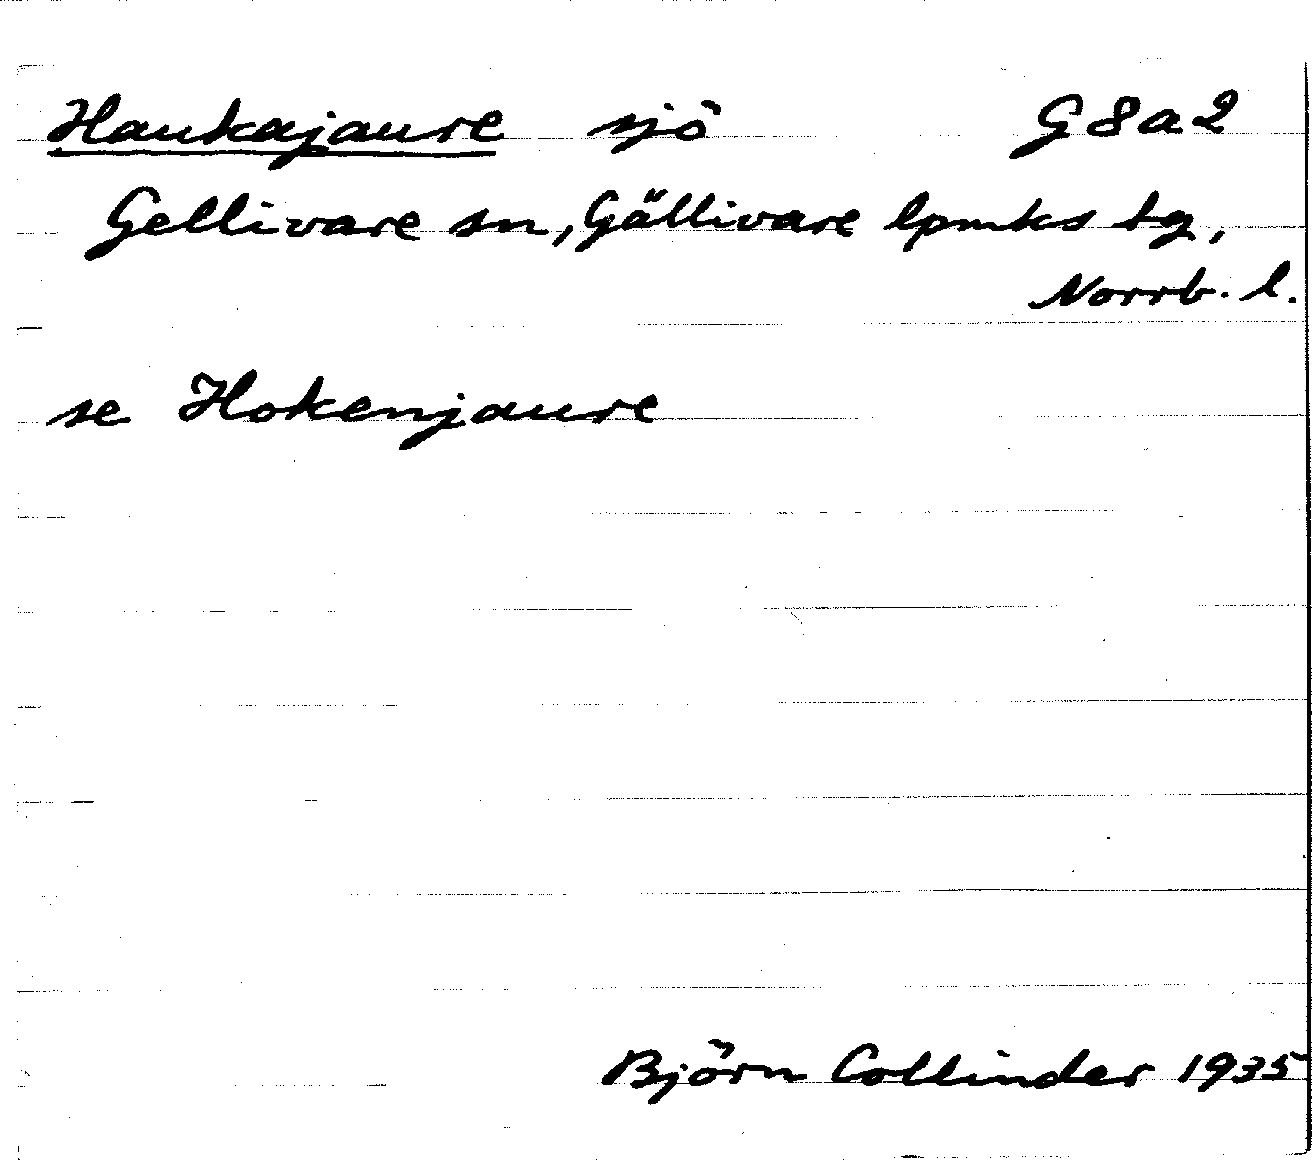 Haukajaure sjö G8a2
Gellivare sn, Gällivare lpmks tg,
Norrb. l.
se Hokenjaure
Björn Collinder 1935